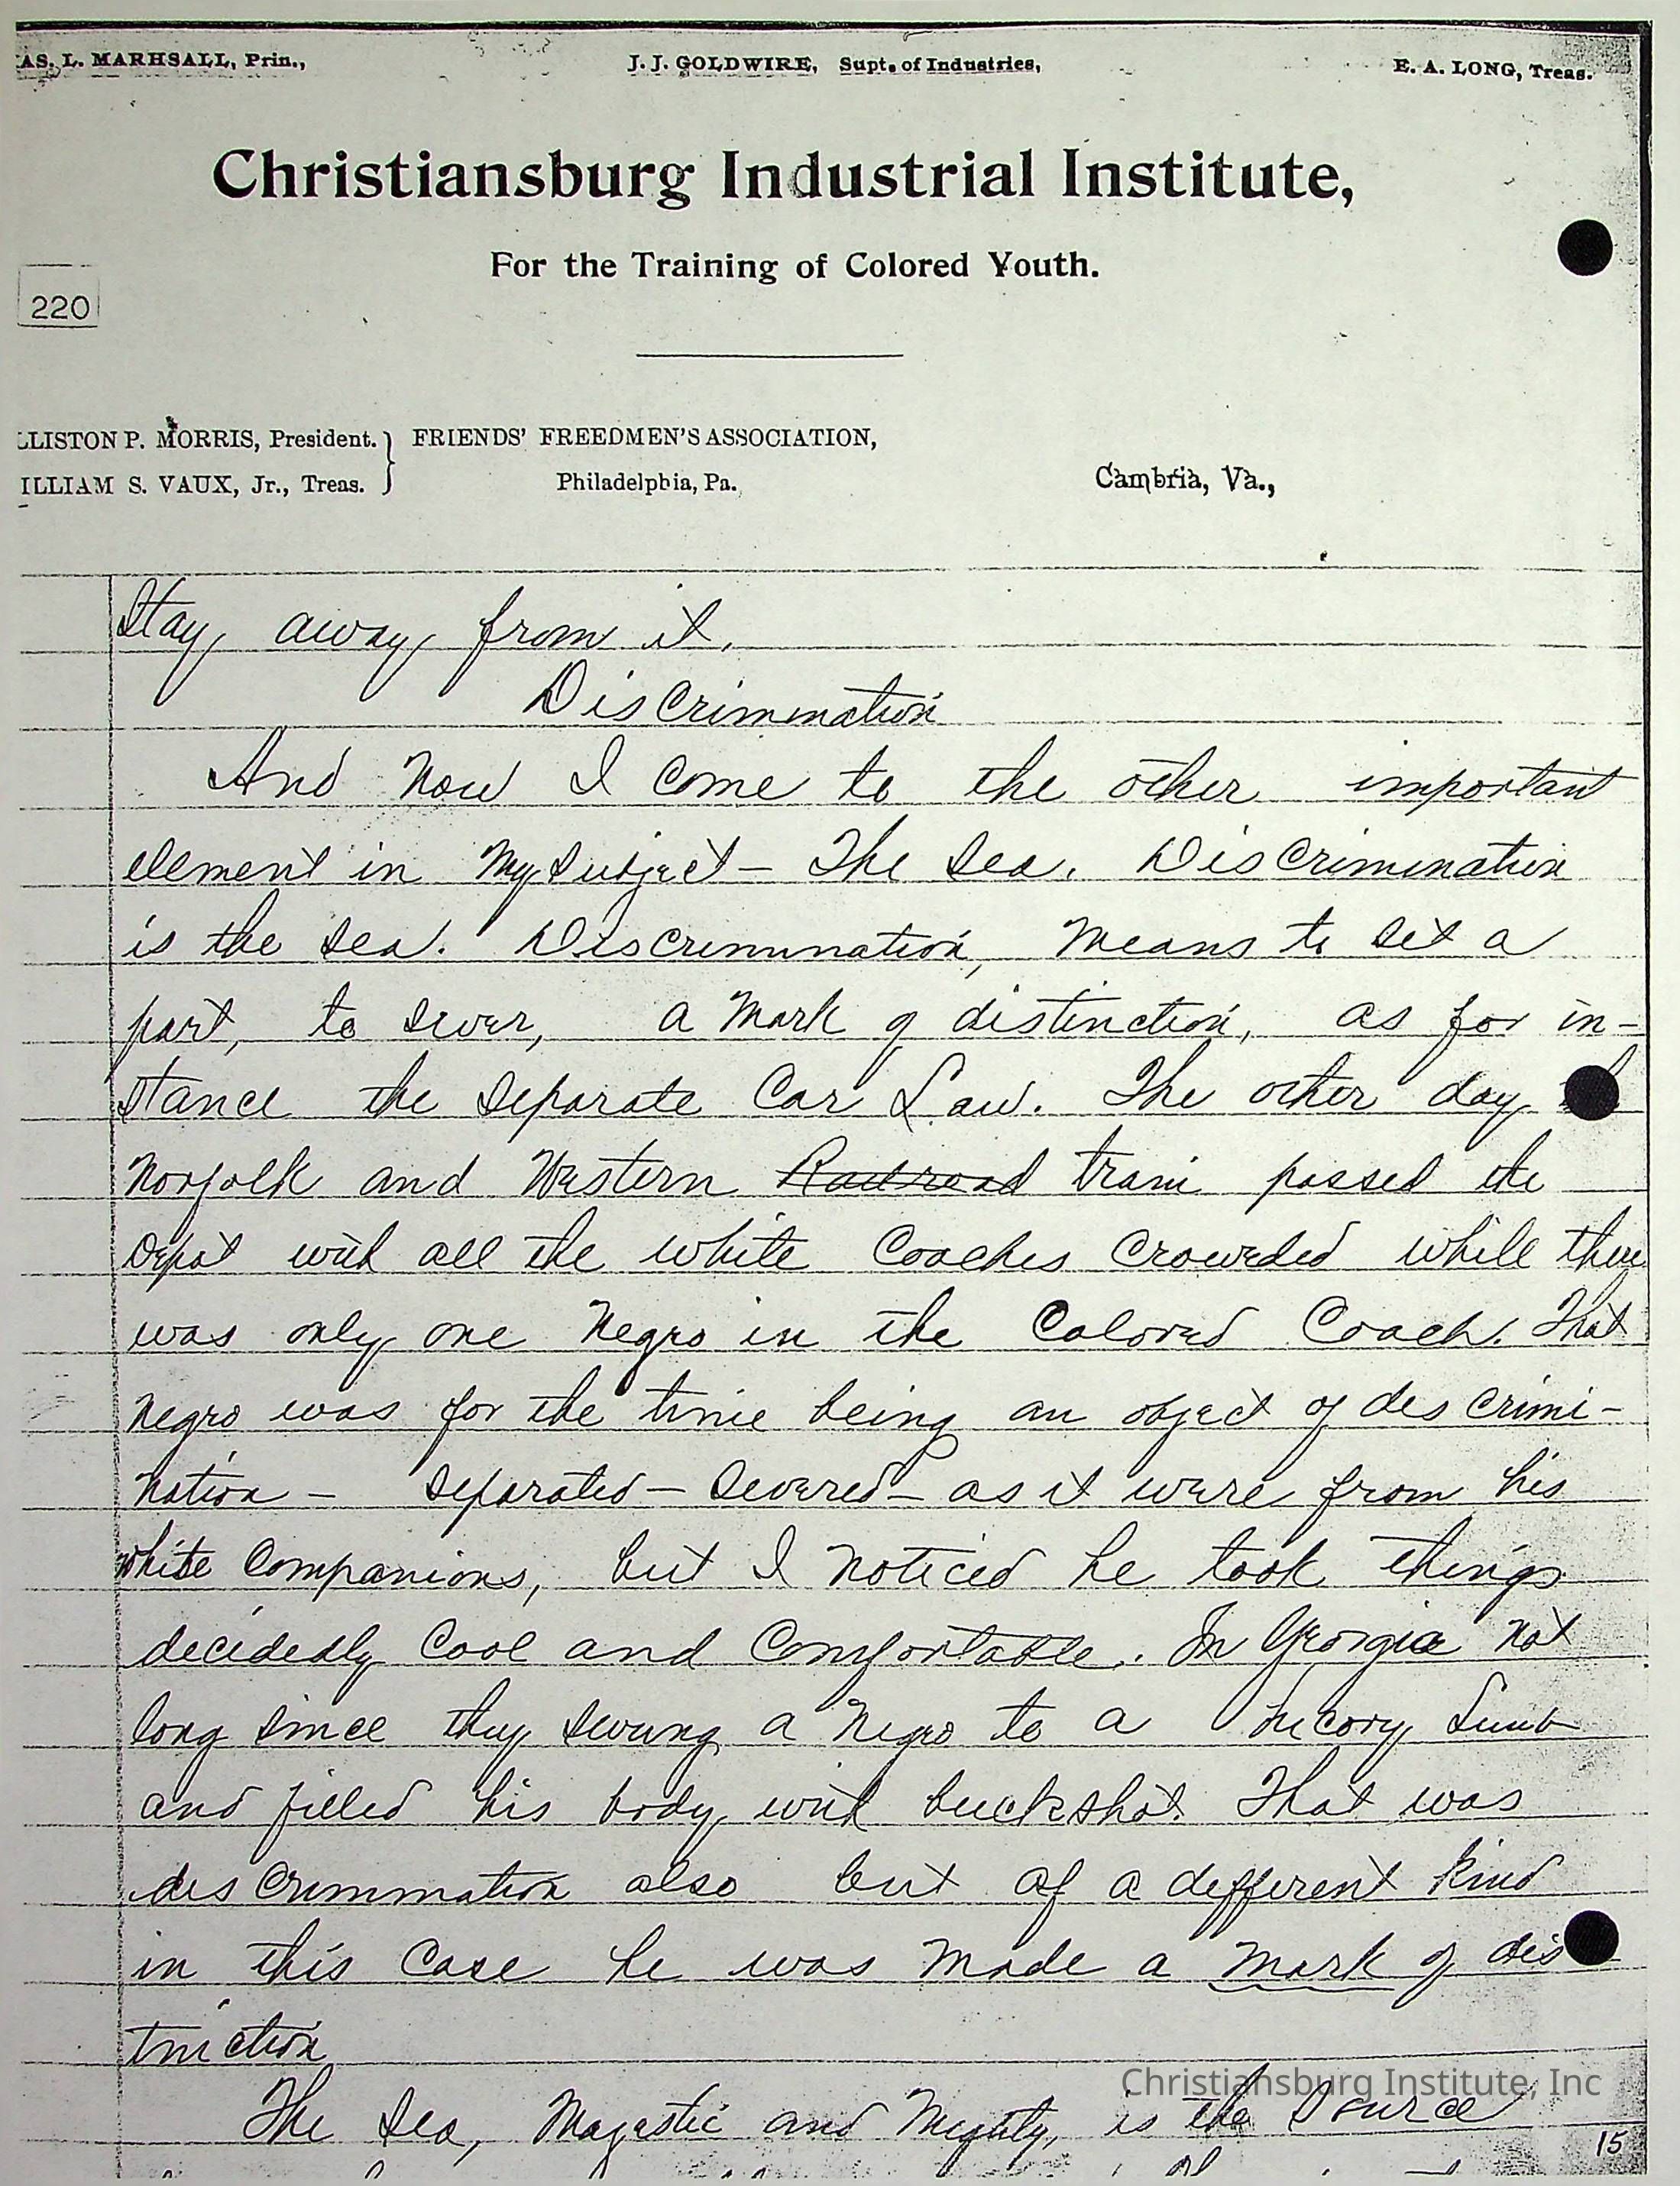 AS. L. MARHSALL, Prin., J. J. GOLDWIRE, Supt. of Industries, E. A. LONG, Treas.
Christiansburg Industrial Institute,
For the Training of Colored Youth.
220
LLISTON P. MORRIS, President. } FRIENDS' FREEDMEN'S ASSOCIATION,
ILLIAM S. VAUX, Jr., Treas. Philadelphia, Pa. Cambria, Va.,
Stay away from it.
Discrimination
And now I come to the other important
element in my subject - The Sea. Discrimination
is the sea. Discrimination, means to set a
part, to sever, a mark of distinction, as for in-
stance the separate Car Law. The other day
Norfolk and Western Railroad train passed the
Depot with all the white Coaches Crowded while there
was only one Negro in the Colored Coach. That
negro was for the time being an object of des crimi-
nation - separated - severed - as it were from his
white Companions, but I noticed he took things
decidedly Cool and Comfortable. In Georgia not
long since they swung a Negro to a hicory Limb
and filled his body with buckshot. That was
des crimmation also but of a defferent kind
in this Case he was made a mark of dis
tinction
The Sea, Majestic and Mighty, is the Source
Christiansburg Institute, Inc
15